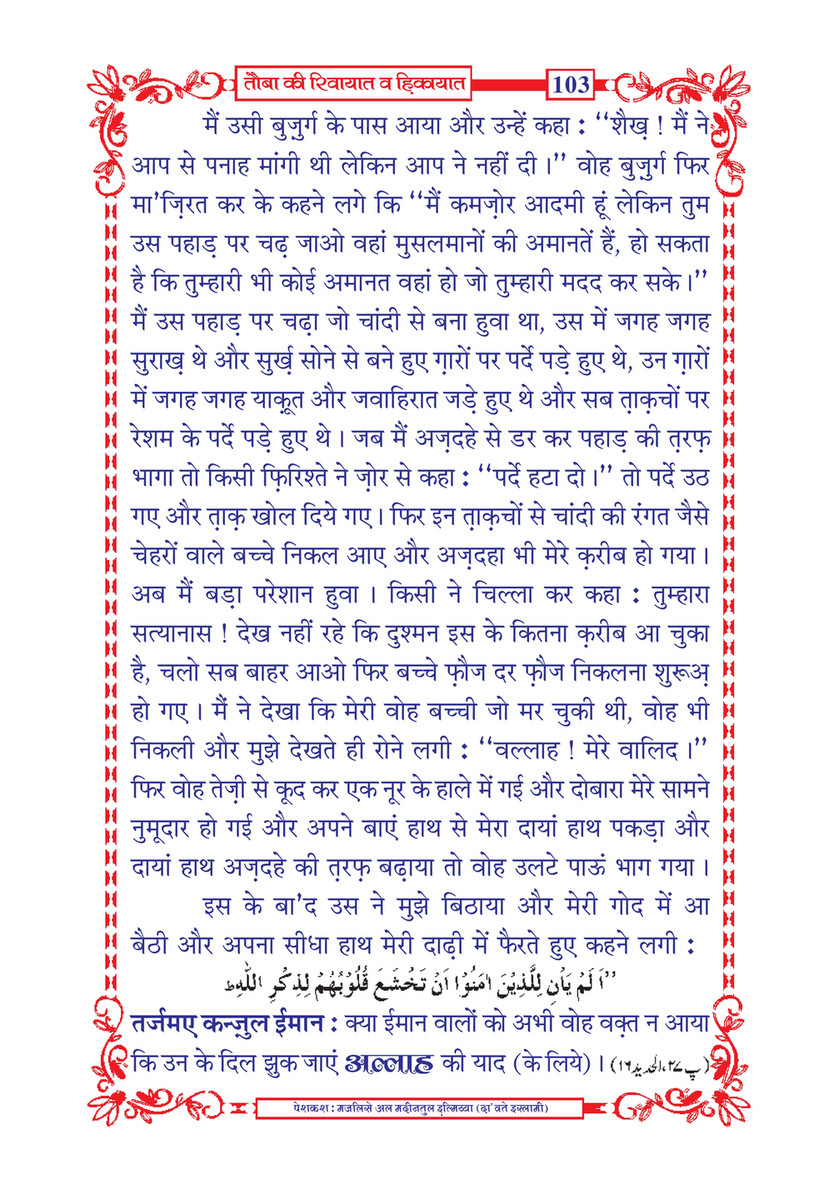 तौबा की रिवायात व हिकायात 103
मैं उसी बुज़ुर्ग के पास आया और उन्हें कहा : ‘‘शैख़ ! मैं ने
आप से पनाह मांगी थी लेकिन आप ने नहीं दी ।’’ वोह बुज़ुर्ग फिर
मा’ज़िरत कर के कहने लगे कि ‘‘मैं कमज़ोर आदमी हूं लेकिन तुम
उस पहाड़ पर चढ़ जाओ वहां मुसलमानों की अमानतें हैं, हो सकता
है कि तुम्हारी भी कोई अमानत वहां हो जो तुम्हारी मदद कर सके ।’’
मैं उस पहाड़ पर चढ़ा जो चांदी से बना हुवा था, उस में जगह जगह
सुराख़ थे और सुर्ख़ सोने से बने हुए ग़ारों पर पर्दे पड़े हुए थे, उन ग़ारों
में जगह जगह याक़ूत और जवाहिरात जड़े हुए थे और सब त़ाक़चों पर
रेशम के पर्दे पड़े हुए थे । जब मैं अज़दहे से डर कर पहाड़ की त़रफ़
भागा तो किसी फ़िरिश्ते ने ज़ोर से कहा : ‘‘पर्दे हटा दो ।’’ तो पर्दे उठ
गए और त़ाक़ खोल दिये गए । फिर इन त़ाक़चों से चांदी की रंगत जैसे
चेहरों वाले बच्चे निकल आए और अज़दहा भी मेरे क़रीब हो गया ।
अब मैं बड़ा परेशान हुवा । किसी ने चिल्ला कर कहा : तुम्हारा
सत्यानास ! देख नहीं रहे कि दुश्मन इस के कितना क़रीब आ चुका
है, चलो सब बाहर आओ फिर बच्चे फ़ौज दर फ़ौज निकलना शुरूअ़
हो गए । मैं ने देखा कि मेरी वोह बच्ची जो मर चुकी थी, वोह भी
निकली और मुझे देखते ही रोने लगी : ‘‘वल्लाह ! मेरे वालिद ।’’
फिर वोह तेज़ी से कूद कर एक नूर के हाले में गई और दोबारा मेरे सामने
नुमूदार हो गई और अपने बाएं हाथ से मेरा दायां हाथ पकड़ा और
दायां हाथ अज़दहे की त़रफ़ बढ़ाया तो वोह उलटे पाऊं भाग गया ।
इस के बा’द उस ने मुझे बिठाया और मेरी गोद में आ
बैठी और अपना सीधा हाथ मेरी दाढ़ी में फैरते हुए कहने लगी :
’’اَلَمْ یَاْنِ لِلَّذِیْنَ اٰمَنُوْۤا اَنْ تَخْشَعَ قُلُوْبُهُمْ لِذِكْرِ اللّٰهِؕ
तर्जमए कन्ज़ुल ईमान : क्या ईमान वालों को अभी वोह वक़्त न आया
कि उन के दिल झुक जाएं अल्लाह की याद (के लिये) । (پ۲۷،الحدید:۱۶)
पेशकश : मजलिसे अल मदीनतुल इल्मिय्या (दा’वते इस्लामी)